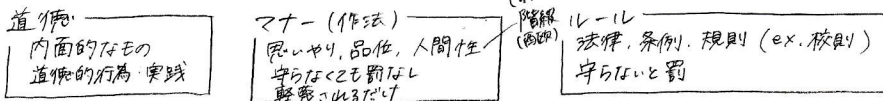 道徳
内面的なもの
道徳的行為・実践
マナー(作法)
思いやり, 品位, 人間性
守らなくても罰なし
軽蔑されるだけ
階級
(西欧)
ルール
法律, 条例, 規則 (ex. 校則)
守らないと罰